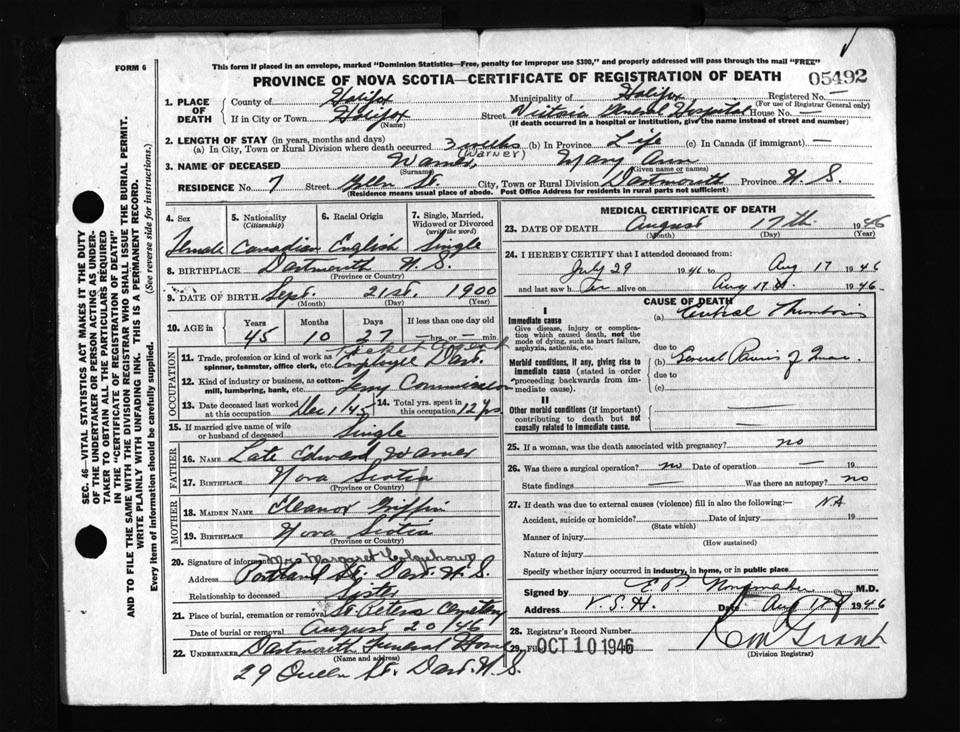 FORM 6
This form if placed in an envelope, marked "Dominion Statistics—Free, penalty for improper use $300," and properly addressed will pass through the mail "FREE"
PROVINCE OF NOVA SCOTIA—CERTIFICATE OF REGISTRATION OF DEATH 05492
1. PLACE OF DEATH County of Halifax Municipality of Halifax Registered No. —
(For use of Registrar General only)
If in City or Town Halifax Street Victoria General Hospital House No. —
(Name) (If death occurred in a hospital or institution, give the name instead of street and number)
2. LENGTH OF STAY (in years, months and days)
(a) In City, Town or Rural Division where death occurred 3 weeks (b) In Province Life (c) In Canada (if immigrant) —
3. NAME OF DECEASED Warner, (WARNER) Mary Ann
(Surname) (Given name or names)
RESIDENCE No. 7 Street St. City, Town or Rural Division Dartmouth Province N.S.
(Residence means usual place of abode. Post Office Address for residents in rural parts not sufficient)
4. Sex 5. Nationality (Citizenship) 6. Racial Origin 7. Single, Married, Widowed or Divorced (write the word)
Female Canadian English Single
8. BIRTHPLACE Dartmouth N.S.
(Province or Country)
9. DATE OF BIRTH Sept. 21st. 1900
(Month) (Day) (Year)
10. AGE in Years Months Days If less than one day
45 10 27 — hrs. or — min.
OCCUPATION
11. Trade, profession or kind of work as spinner, teamster, office clerk, etc. Employee Dart.
12. Kind of industry or business, as cotton-mill, lumbering, bank, etc. Ferry Commission
13. Date deceased last worked at this occupation Dec 1/45 14. Total yrs. spent in this occupation 12 yrs
15. If married give name of wife or husband of deceased Single
FATHER
16. NAME Late Edward Warner
17. BIRTHPLACE Nova Scotia
(Province or Country)
MOTHER
18. MAIDEN NAME Eleanor Griffin
19. BIRTHPLACE Nova Scotia
(Province or Country)
20. Signature of informant Mrs Margaret Colquhoun
Address Portland St. Dart. N.S.
Relationship to deceased Sister
21. Place of burial, cremation or removal St Peters Cemetery
Date of burial or removal August 20/46
22. UNDERTAKER Dartmouth Funeral Home
(Name and address)
29 Queen St. Dart. N.S.
MEDICAL CERTIFICATE OF DEATH
23. DATE OF DEATH August 17th 1946
(Month) (Day) (Year)
24. I HEREBY CERTIFY that I attended deceased from:
July 29 1946 to Aug 17 1946
and last saw her alive on Aug 17 1946
CAUSE OF DEATH
I
Immediate cause (a) Cerebral Thrombosis
Give disease, injury or complication which caused death, not the mode of dying, such as heart failure, asphyxia, asthenia, etc.
due to
Morbid conditions, if any, giving rise to immediate cause (stated in order proceeding backwards from immediate cause). (b) General Paresis of Insane
due to
(c)
II
Other morbid conditions (if important) contributing to death but not causally related to immediate cause. —
25. If a woman, was the death associated with pregnancy? no
26. Was there a surgical operation? no Date of operation — 19
State findings — Was there an autopsy? no
27. If death was due to external causes (violence) fill in also the following:— NA
Accident, suicide or homicide? Date of injury 19
(State which)
Manner of injury
(How sustained)
Nature of injury
Specify whether injury occurred in industry, in home, or in public place
Signed by E. P. M.D.
Address V.G.H. Date Aug 17 1946
28. Registrar's Record Number
29. Filed OCT 10 1946
(Division Registrar)
SEC. 46—VITAL STATISTICS ACT MAKES IT THE DUTY
OF THE UNDERTAKER OR PERSON ACTING AS UNDER-
TAKER TO OBTAIN ALL THE PARTICULARS REQUIRED
IN THE "CERTIFICATE OF REGISTRATION OF DEATH" AND
TO FILE THE SAME WITH THE DIVISION REGISTRAR WHO SHALL ISSUE THE BURIAL PERMIT.
WRITE PLAINLY WITH UNFADING INK. THIS IS A PERMANENT RECORD.
Every item of information should be carefully supplied. (See reverse side for instructions.)